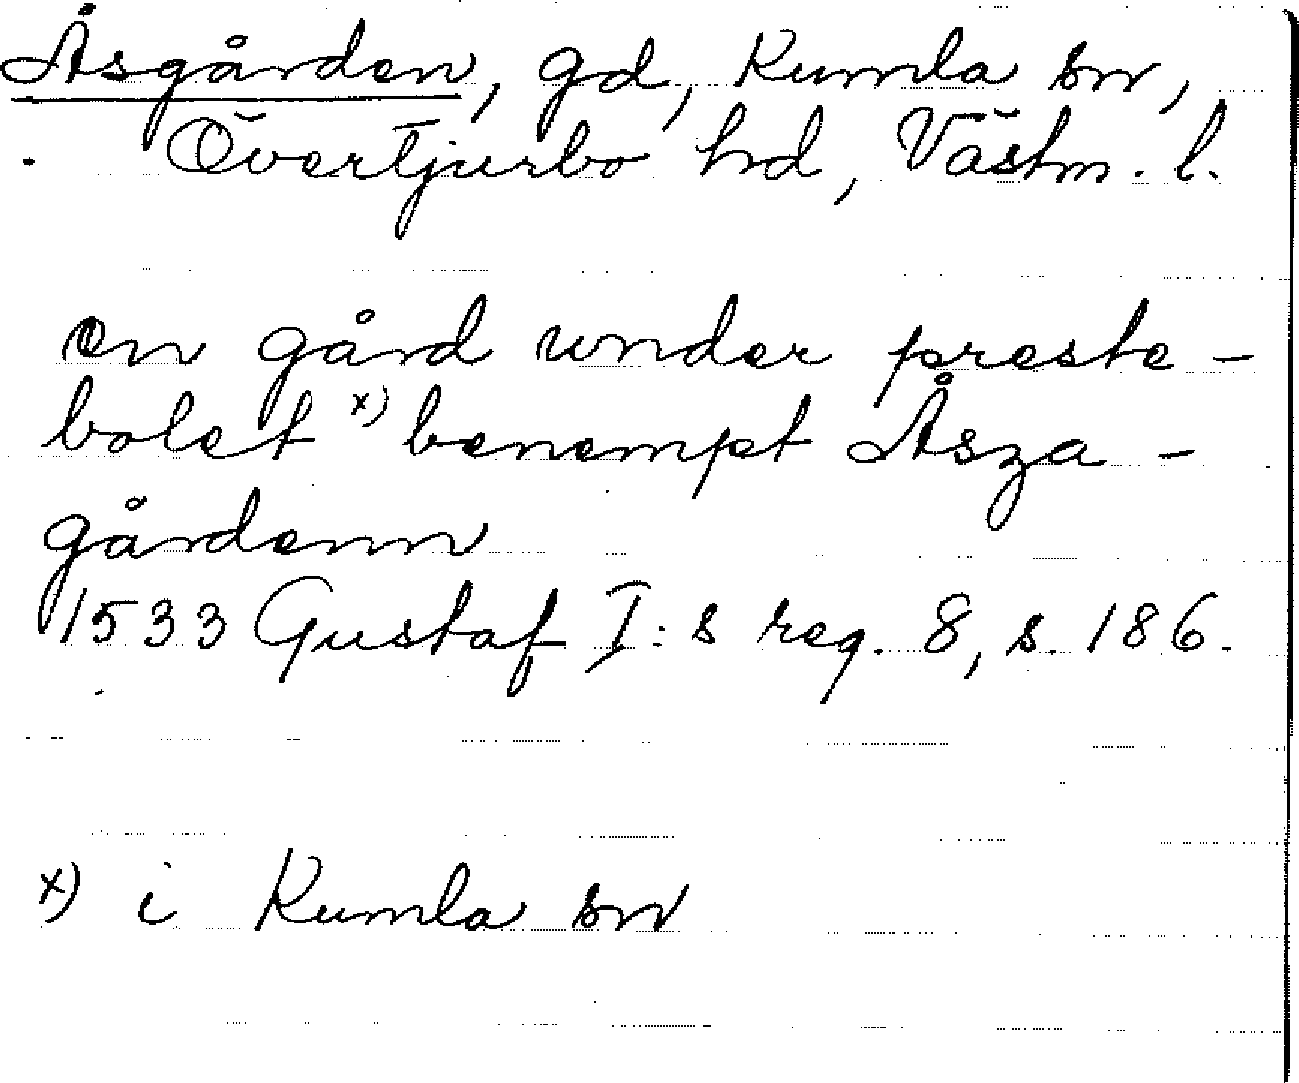 Åsgården, gd, Kumla sn,
Övertjurbo hd, Västm. l.
en gård under preste-
bolet x) benempt Åsza-
gårdenn
1533 Gustaf I:s reg. 8, s. 186.
x) i Kumla sn